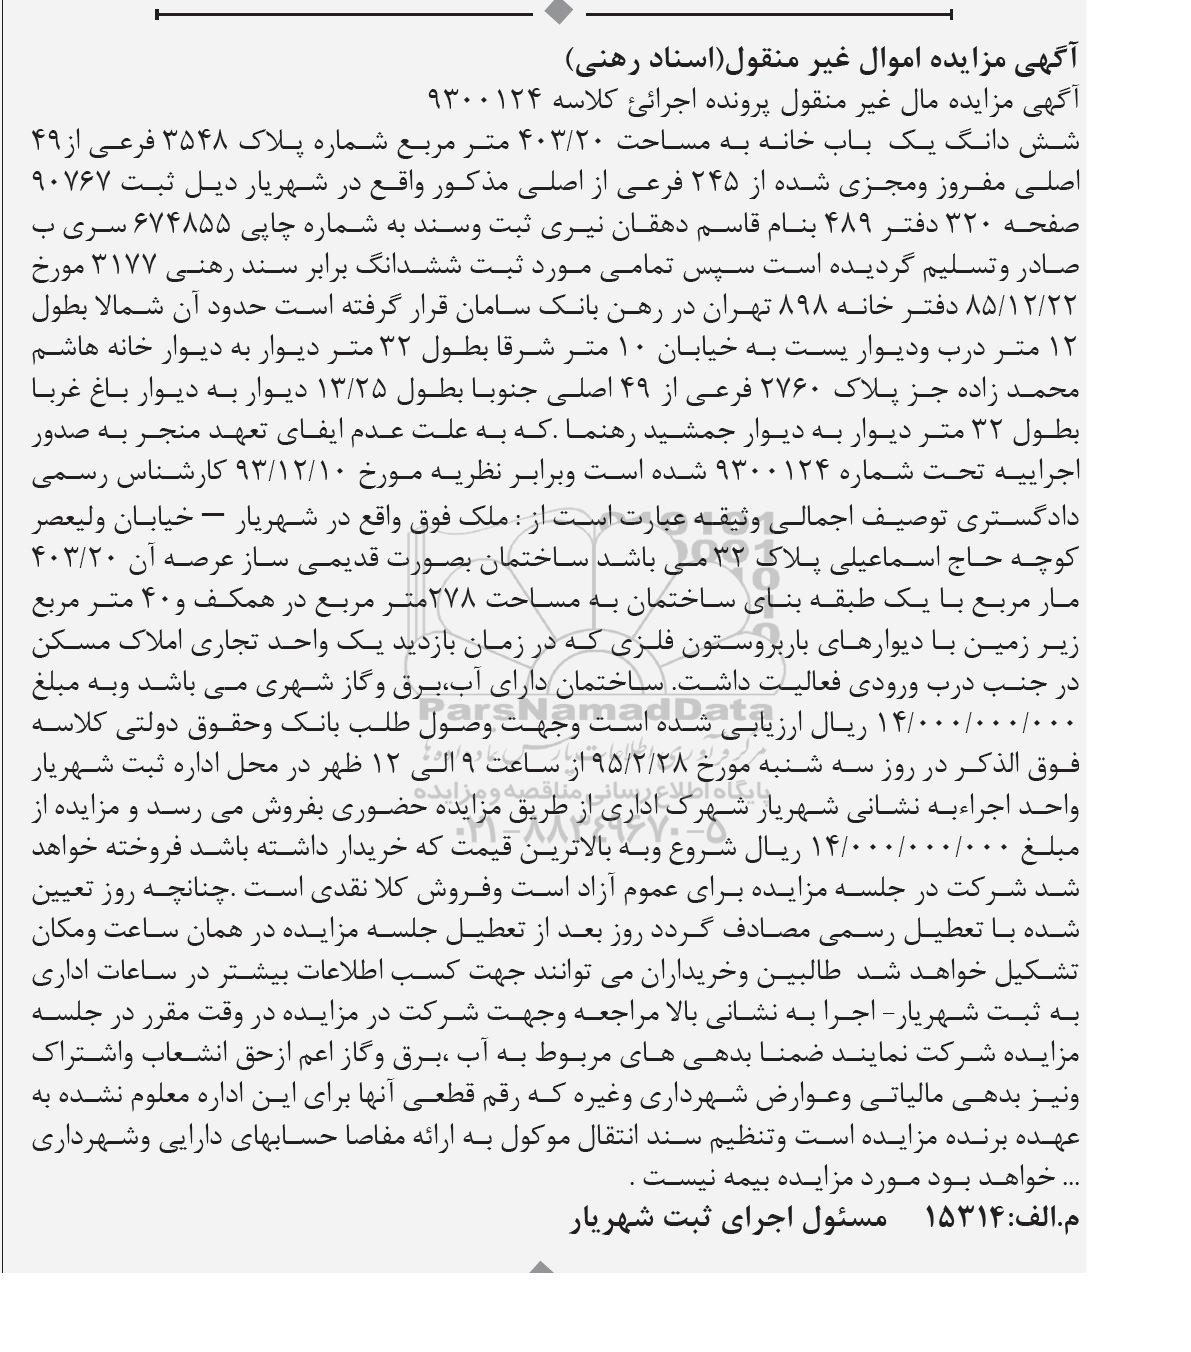 آگهی مزایده اموال غیر منقول(اسناد رهنی)
آگهی مزایده مال غیر منقول پرونده اجرائی کلاسه ۹۳۰۰۱۲۴
شش دانگ یک باب خانه به مساحت ۴۰۳/۲۰ متر مربع شماره پلاک ۳۵۴۸ فرعی از۴۹
اصلی مفروز ومجزی شده از ۲۴۵ فرعی از اصلی مذکور واقع در شهریار دیل ثبت ۹۰۷۶۷
صفحه ۳۲۰ دفتر ۴۸۹ بنام قاسم دهقان نیری ثبت وسند به شماره چاپی ۶۷۴۸۵۵ سری ب
صادر وتسلیم گردیده است سپس تمامی مورد ثبت ششدانگ برابر سند رهنی ۳۱۷۷ مورخ
۸۵/۱۲/۲۲ دفتر خانه ۸۹۸ تهران در رهن بانک سامان قرار گرفته است حدود آن شمالا بطول
۱۲ متر درب ودیوار یست به خیابان ۱۰ متر شرقا بطول ۳۲ متر دیوار به دیوار خانه هاشم
محمد زاده جز پلاک ۲۷۶۰ فرعی از ۴۹ اصلی جنوبا بطول ۱۳/۲۵ دیوار به دیوار باغ غربا
بطول ۳۲ متر دیوار به دیوار جمشید رهنما .که به علت عدم ایفای تعهد منجر به صدور
اجراییه تحت شماره ۹۳۰۰۱۲۴ شده است وبرابر نظریه مورخ ۹۳/۱۲/۱۰ کارشناس رسمی
دادگستری توصیف اجمالی وثیقه عبارت است از : ملک فوق واقع در شهریار – خیابان ولیعصر
کوچه حاج اسماعیلی پلاک ۳۲ می باشد ساختمان بصورت قدیمی ساز عرصه آن ۴۰۳/۲۰
مار مربع با یک طبقه بنای ساختمان به مساحت ۲۷۸متر مربع در همکف و۴۰ متر مربع
زیر زمین با دیوارهای باربروستون فلزی که در زمان بازدید یک واحد تجاری املاک مسکن
در جنب درب ورودی فعالیت داشت. ساختمان دارای آب،برق وگاز شهری می باشد وبه مبلغ
۱۴/۰۰۰/۰۰۰/۰۰۰ ریال ارزیابی شده است وجهت وصول طلب بانک وحقوق دولتی کلاسه
فوق الذکر در روز سه شنبه مورخ ۹۵/۲/۲۸ از ساعت ۹ الی ۱۲ ظهر در محل اداره ثبت شهریار
واحد اجراءبه نشانی شهریار شهرک اداری از طریق مزایده حضوری بفروش می رسد و مزایده از
مبلغ ۱۴/۰۰۰/۰۰۰/۰۰۰ ریال شروع وبه بالاترین قیمت که خریدار داشته باشد فروخته خواهد
شد شرکت در جلسه مزایده برای عموم آزاد است وفروش کلا نقدی است .چنانچه روز تعیین
شده با تعطیل رسمی مصادف گردد روز بعد از تعطیل جلسه مزایده در همان ساعت ومکان
تشکیل خواهد شد طالبین وخریداران می توانند جهت کسب اطلاعات بیشتر در ساعات اداری
به ثبت شهریار- اجرا به نشانی بالا مراجعه وجهت شرکت در مزایده در وقت مقرر در جلسه
مزایده شرکت نمایند ضمنا بدهی های مربوط به آب ،برق وگاز اعم ازحق انشعاب واشتراک
ونیز بدهی مالیاتی وعوارض شهرداری وغیره که رقم قطعی آنها برای این اداره معلوم نشده به
عهده برنده مزایده است وتنظیم سند انتقال موکول به ارائه مفاصا حسابهای دارایی وشهرداری
... خواهد بود مورد مزایده بیمه نیست .
م.الف:۱۵۳۱۴ مسئول اجرای ثبت شهریار
ParsNamadData
پایگاه اطلاع رسانی مناقصه و مزایده
۰۲۱-۸۸۳۴۹۶۷۰-۵